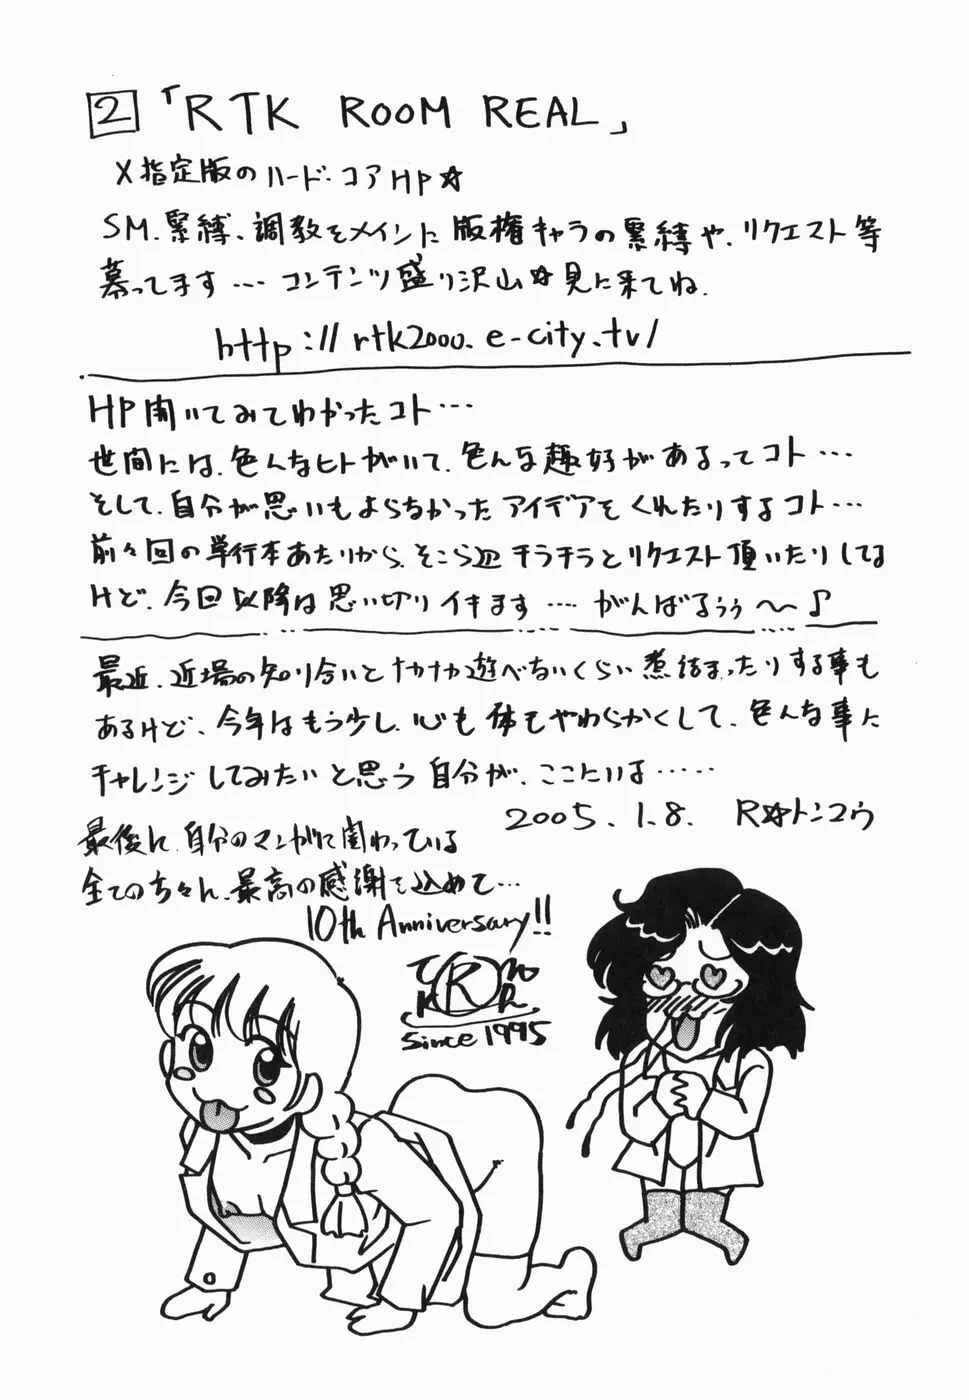 2 「RTK ROOM REAL」
X指定版のハード・コアHP☆
SM、緊縛、調教をメインに版権キャラの緊縛や、リクエスト等
募ってます…コンテンツ盛り沢山☆見に来てね。
http://rtk2000.e-city.tv/
HP開いてみてわかったコト…
世間には、色んなヒトがいて、色んな趣好があるってコト…
そして、自分が思いもよらなかったアイデアをくれたりするコト…
前々回の単行本あたりから、そこら辺チラチラとリクエスト頂いたりしてる
けど、今回以降は思い切りイキます…がんばるぅぅ〜♪
最近、近場の知り合いとナカナカ遊べないくらい煮詰まったりする事も
あるけど、今年はもう少し、心も体もやわらかくして、色んな事に
チャレンジしてみたいと思う自分が、ここにいる……
2005.1.8. R☆トンコウ
最後に、自分のマンガに関わっている
全ての方々へ、最高の感謝を込めて…
10th Anniversary!!
R
since 1995